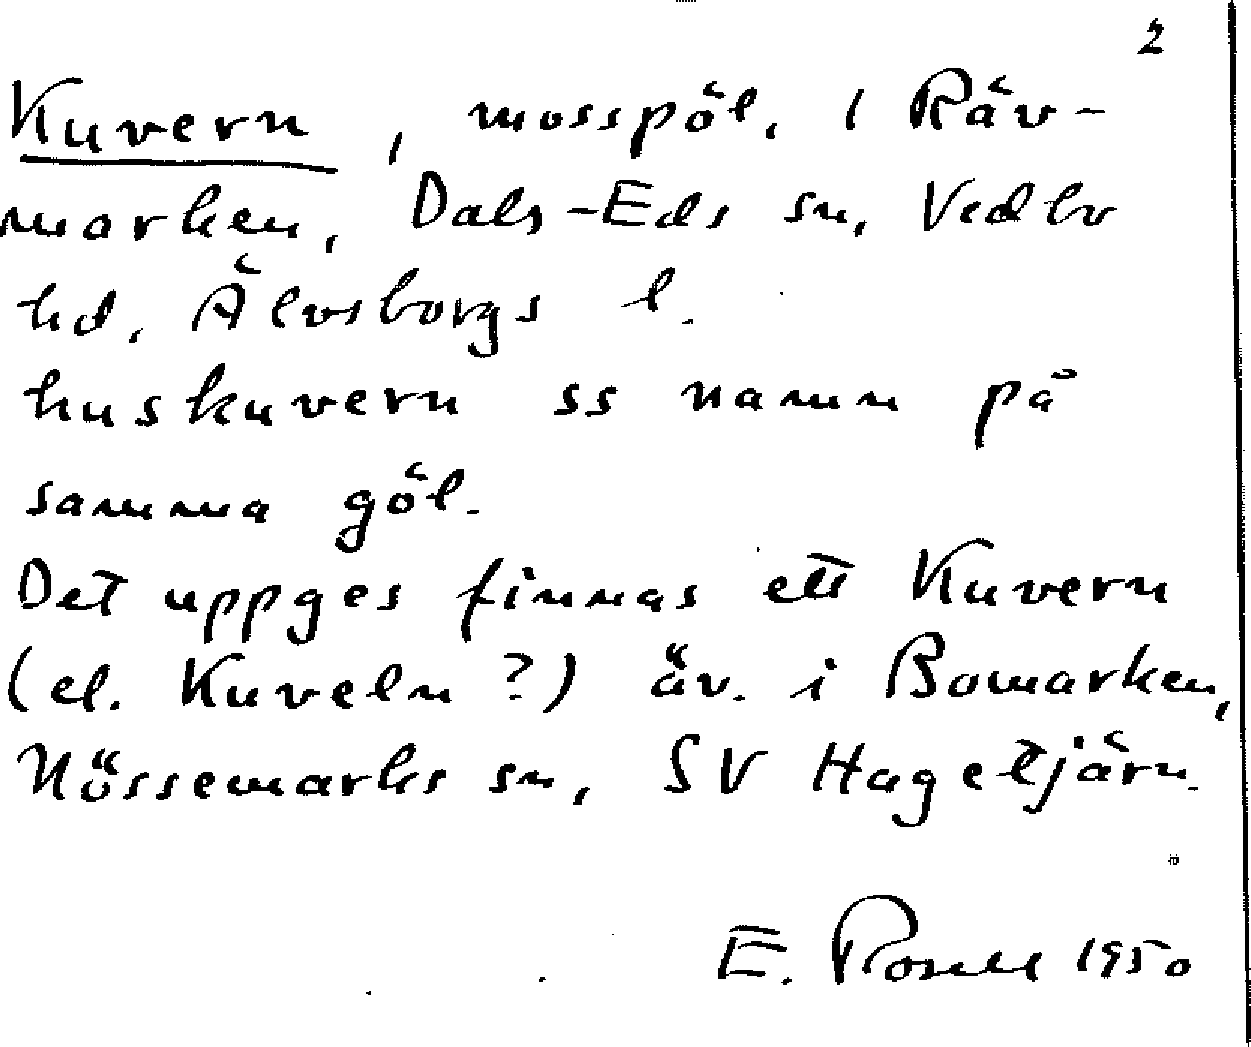 2
Kuvern, mosspöl, i Räv-
marken, Dals-Eds sn, Vedbo
hd, Älvsborgs l.
huskuvern ss namn på
samma göl.
Det uppges finnas ett Kuvern
(el. Kuveln?) äv. i Bomarken,
Nössemarks sn, SV Hagetjärn.
E. Rosell 1950